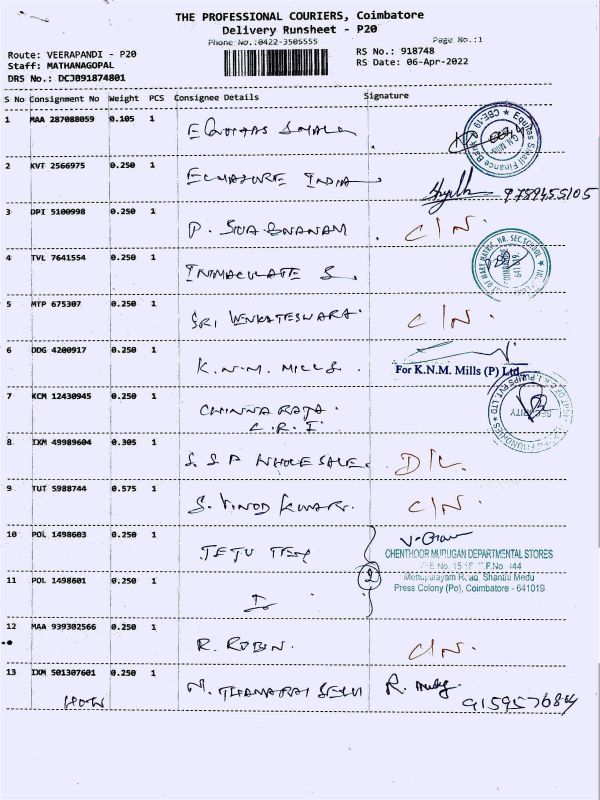 THE PROFESSIONAL COURIERS, Coimbatore
Delivery Runsheet - P20
Phone No.:0422-3505555
Page No.:1
Route: VEERAPANDI - P20
Staff: MATHANAGOPAL
DRS No.: DCJB91874801
RS No.: 918748
RS Date: 06-Apr-2022
S No Consignment No Weight PCS Consignee Details Signature
1 MAA 287088059 0.105 1 EQUITAS SMALL
Equitas Small Finance
G.N. Mills
CBE-19
2 KVT 2566975 0.250 1 INDIA
9789455105
3 DPI 5100998 0.250 1 P. SIVAGNANAM C/N.
4 TVL 7641554 0.250 1 INMACULATE S
MATRIC. HR. SEC. SCHOOL
5 MTP 675307 0.250 1 SRI VENKATESWARA C/N.
6 DDG 4200917 0.250 1 K.N.M. MILLS.
For K.N.M. Mills (P) Ltd.
7 KCM 12430945 0.250 1 CHINNARAJA.
C.R.I
PUMPS PVT. LTD
SECURITY
8 IXM 49989604 0.305 1 S.S.P WHOLESALE. D/L.
9 TUT 5988744 0.575 1 S. VINOD KUMAR. C/N.
10 POL 1498603 0.250 1
CHENTHOOR MURUGAN DEPARTMENTAL STORES
11 POL 1498601 0.250 1 2
Mettupalayam Road, Shanthi Medu
Press Colony (Po), Coimbatore - 641019
12 MAA 939302566 0.250 1 R. ROBIN. C/N.
13 IXM 501307601 0.250 1 N. THANARAJ SELVI R.